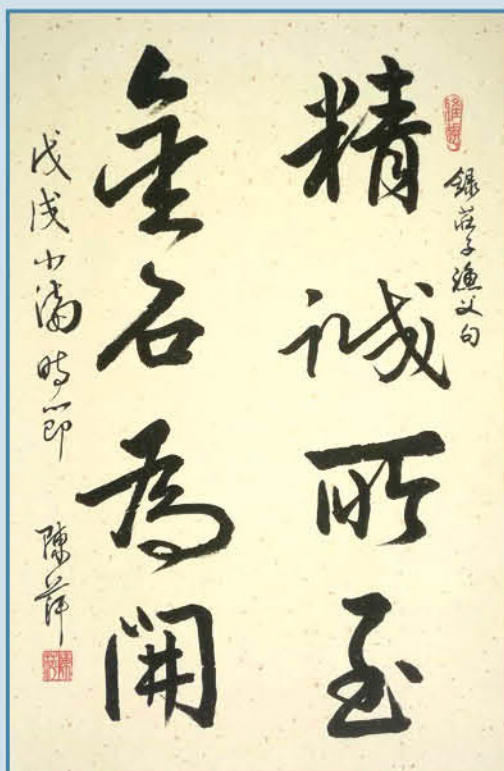 錄莊子漁父句
精誠所至
金石為開
戊戌小滿時節 陳萍